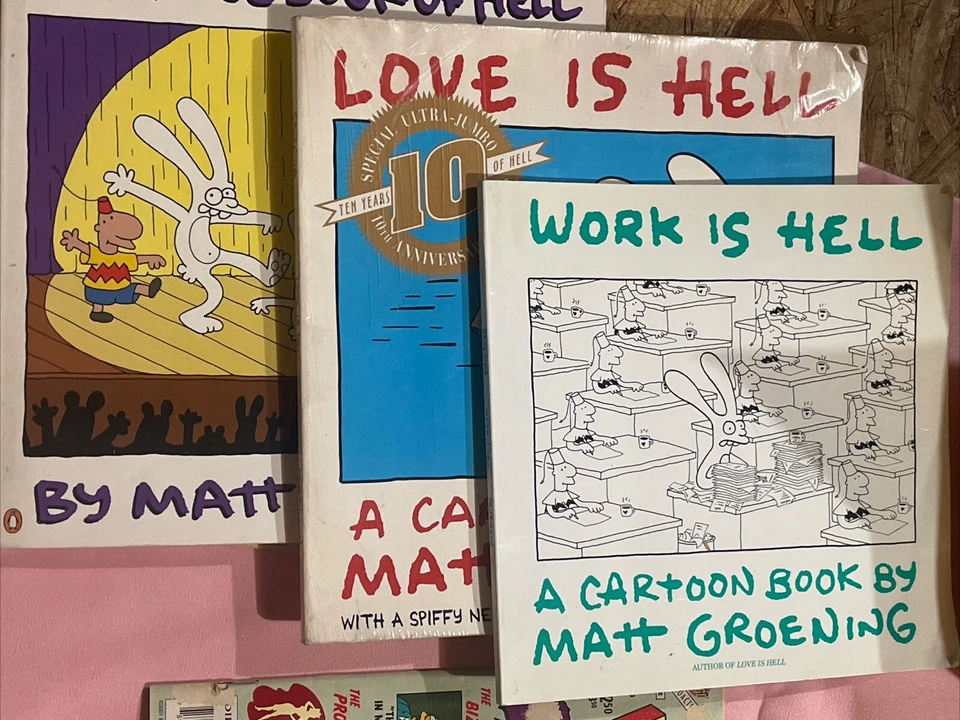 BOOK OF HELL
BY MATT
LOVE IS HELL
SPECIAL ULTRA-JUMBO
10
TEN YEARS
OF HELL
10th ANNIVERSA
A CA
MATT
WITH A SPIFFY NE
WORK IS HELL
A CARTOON BOOK BY
MATT GROENING
AUTHOR OF LOVE IS HELL
THE
PRO
"T
IN N
THE
BI
250